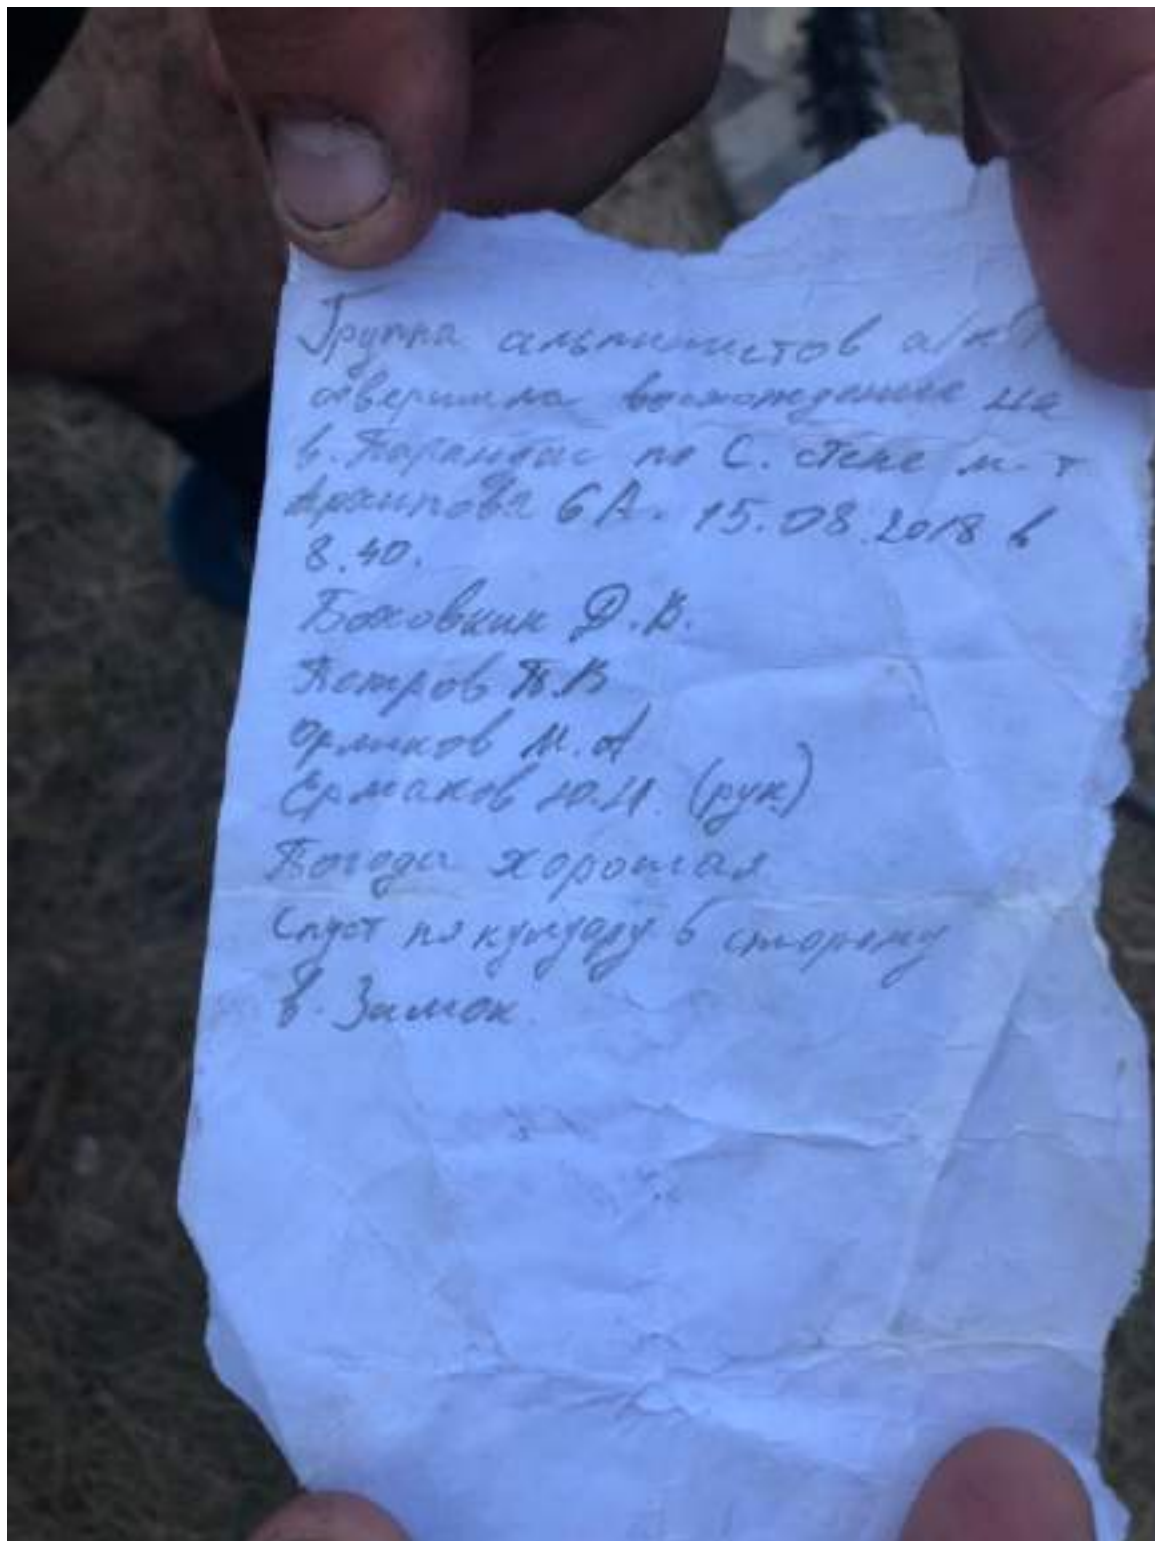 Группа альпинистов а/к
совершила восхождение на
в. Парандас по С. стене м-т
Архипова 6А. 15.08.2018 в
8.40.
Боковкин Д.В.
Петров П.В
Орликов М.А
Ермаков Ю.И. (рук)
Погода хорошая
Спуст по кулуару в сторону
в. Замок